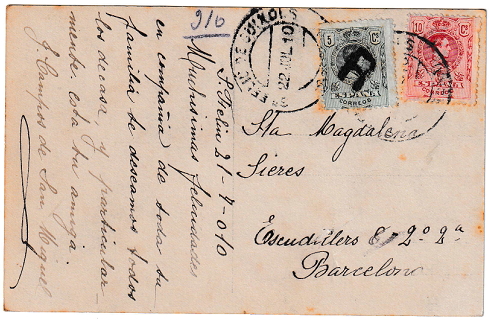 910
S. Feliu 21-7-910
Muchisimas felicidades
en compañia de toda tu
familia te deseamos todos
los de casa y particular-
mente esta tu amiga
J. Campos de San Miguel
S. FELIU DE GUIXOLS
22 JUL 10
5 Cs
ESPAÑA
CORREOS
10 Cs
Sta Magdalena
Sieres
Escudillers 2º 2ª
Barcelona